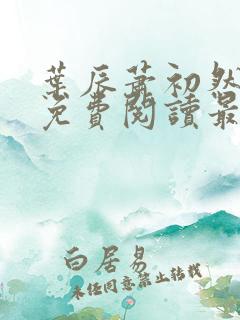 葉辰蕭初然
免費閱讀最
白居易
未经同意禁止转载